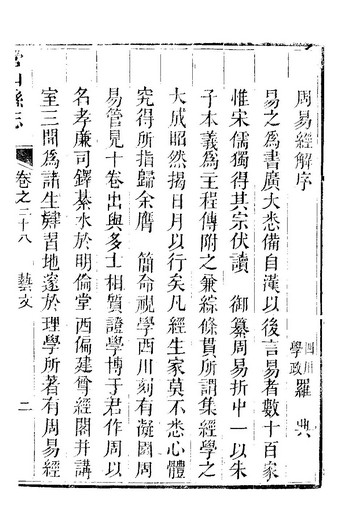 周易經解序
四川學政羅典
易之為書廣大悉備自漢以後言易者數十百家
惟宋儒獨得其宗伏讀 御纂周易折中一以朱
子本義為主程傳附之兼綜條貫所謂集經學之
大成昭然揭日月以行矣凡經生家莫不悉心體
究得所指歸余膺 簡命視學西川刻有凝園周
易管見十卷出與多士相質證學博于君作周以
名孝廉司鐸綦水於明倫堂西偏建尊經閣并講
室三間為諸生肄習地邃於理學所著有周易經
縣志
卷之二十八 藝文 二